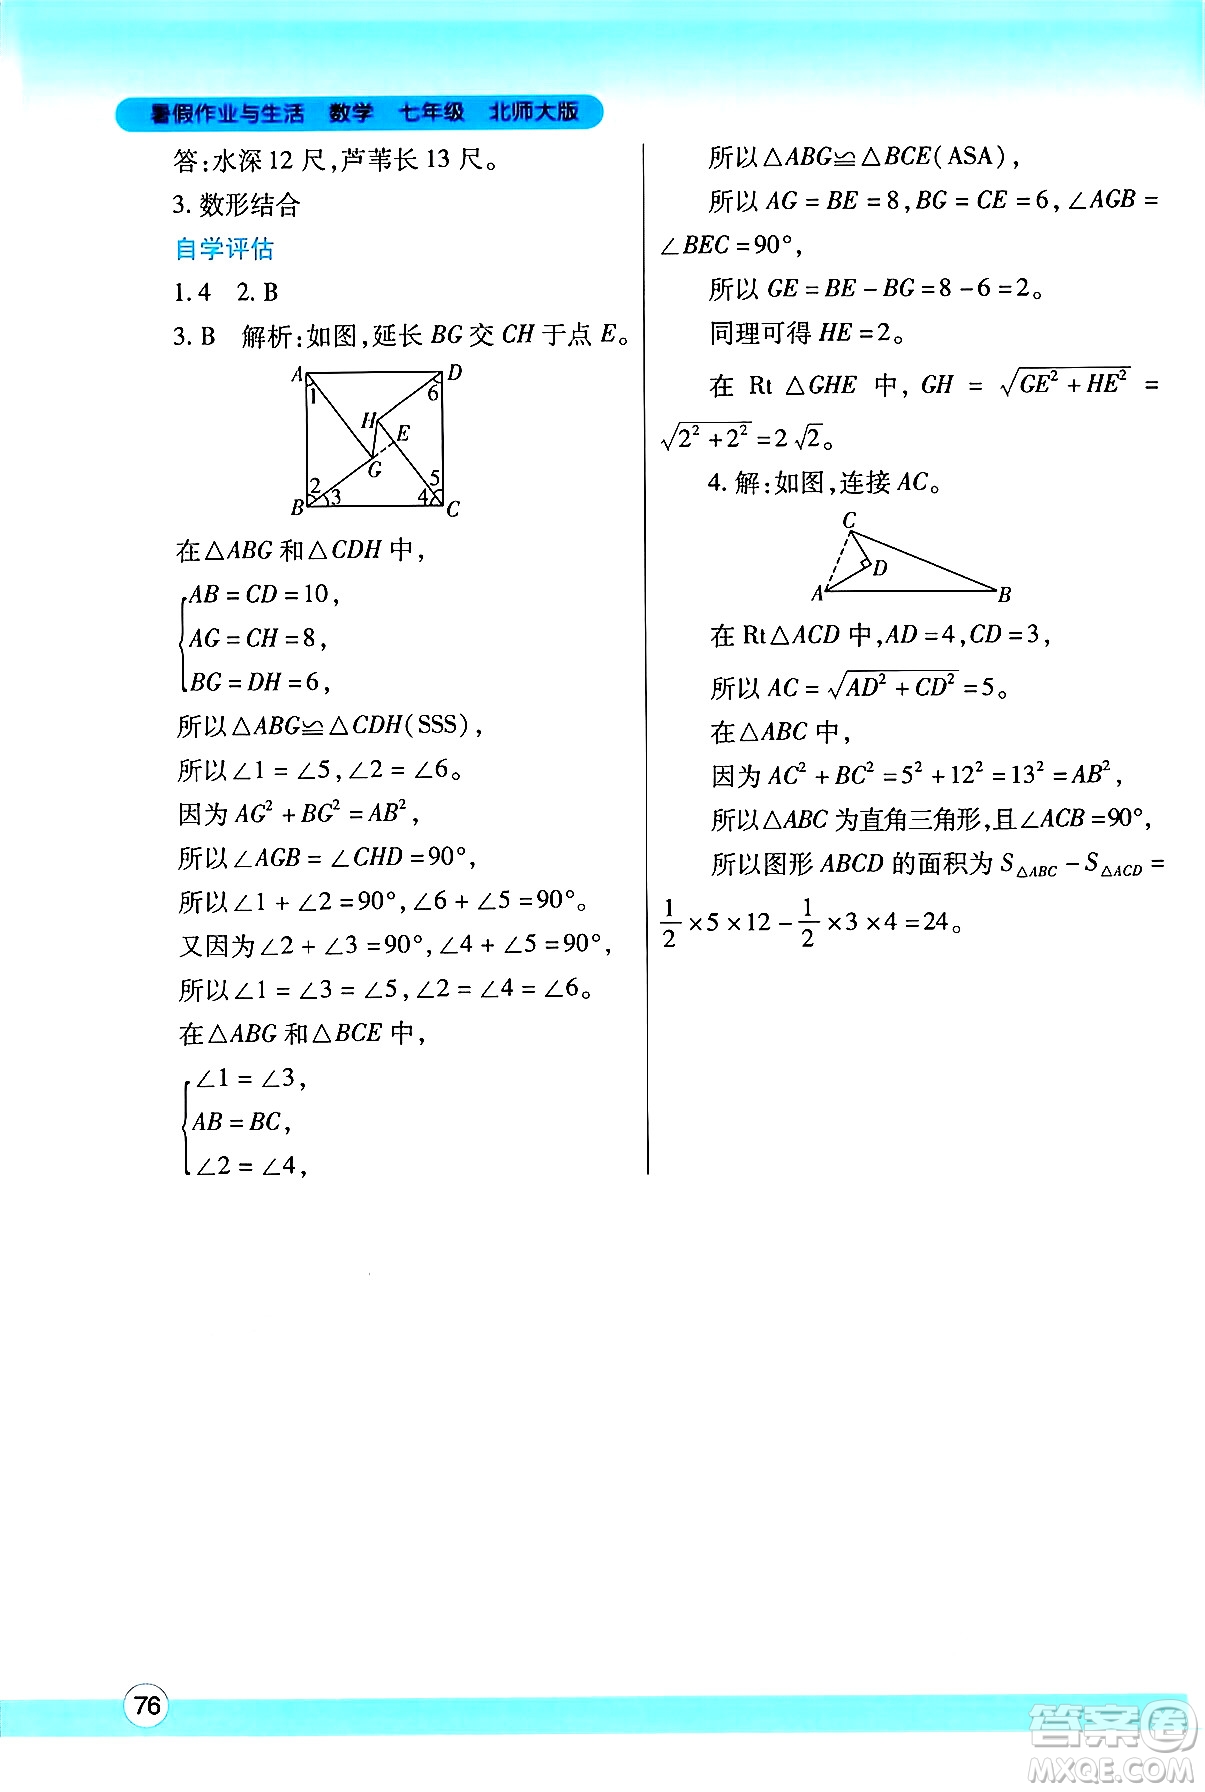 暑假作业与生活 数学 七年级 北师大版
答:水深12尺,芦苇长13尺。
3. 数形结合
自学评估
1. 4 2. B
3. B 解析:如图,延长BG交CH于点E。
A D
1 6
H E
G
2 3 5 4
B C
在△ABG和△CDH中,
AB=CD=10,
AG=CH=8,
BG=DH=6,
所以△ABG≌△CDH(SSS),
所以∠1=∠5,∠2=∠6。
因为AG²+BG²=AB²,
所以∠AGB=∠CHD=90°,
所以∠1+∠2=90°,∠6+∠5=90°。
又因为∠2+∠3=90°,∠4+∠5=90°,
所以∠1=∠3=∠5,∠2=∠4=∠6。
在△ABG和△BCE中,
∠1=∠3,
AB=BC,
∠2=∠4,
所以△ABG≌△BCE(ASA),
所以AG=BE=8,BG=CE=6,∠AGB=
∠BEC=90°,
所以GE=BE-BG=8-6=2。
同理可得HE=2。
在Rt△GHE中,GH=√(GE²+HE²)=
√(2²+2²)=2√2。
4. 解:如图,连接AC。
C
D
A B
在Rt△ACD中,AD=4,CD=3,
所以AC=√(AD²+CD²)=5。
在△ABC中,
因为AC²+BC²=5²+12²=13²=AB²,
所以△ABC为直角三角形,且∠ACB=90°,
所以图形ABCD的面积为S△ABC-S△ACD=
1/2×5×12-1/2×3×4=24。
76
答案圈
MXQE.COM